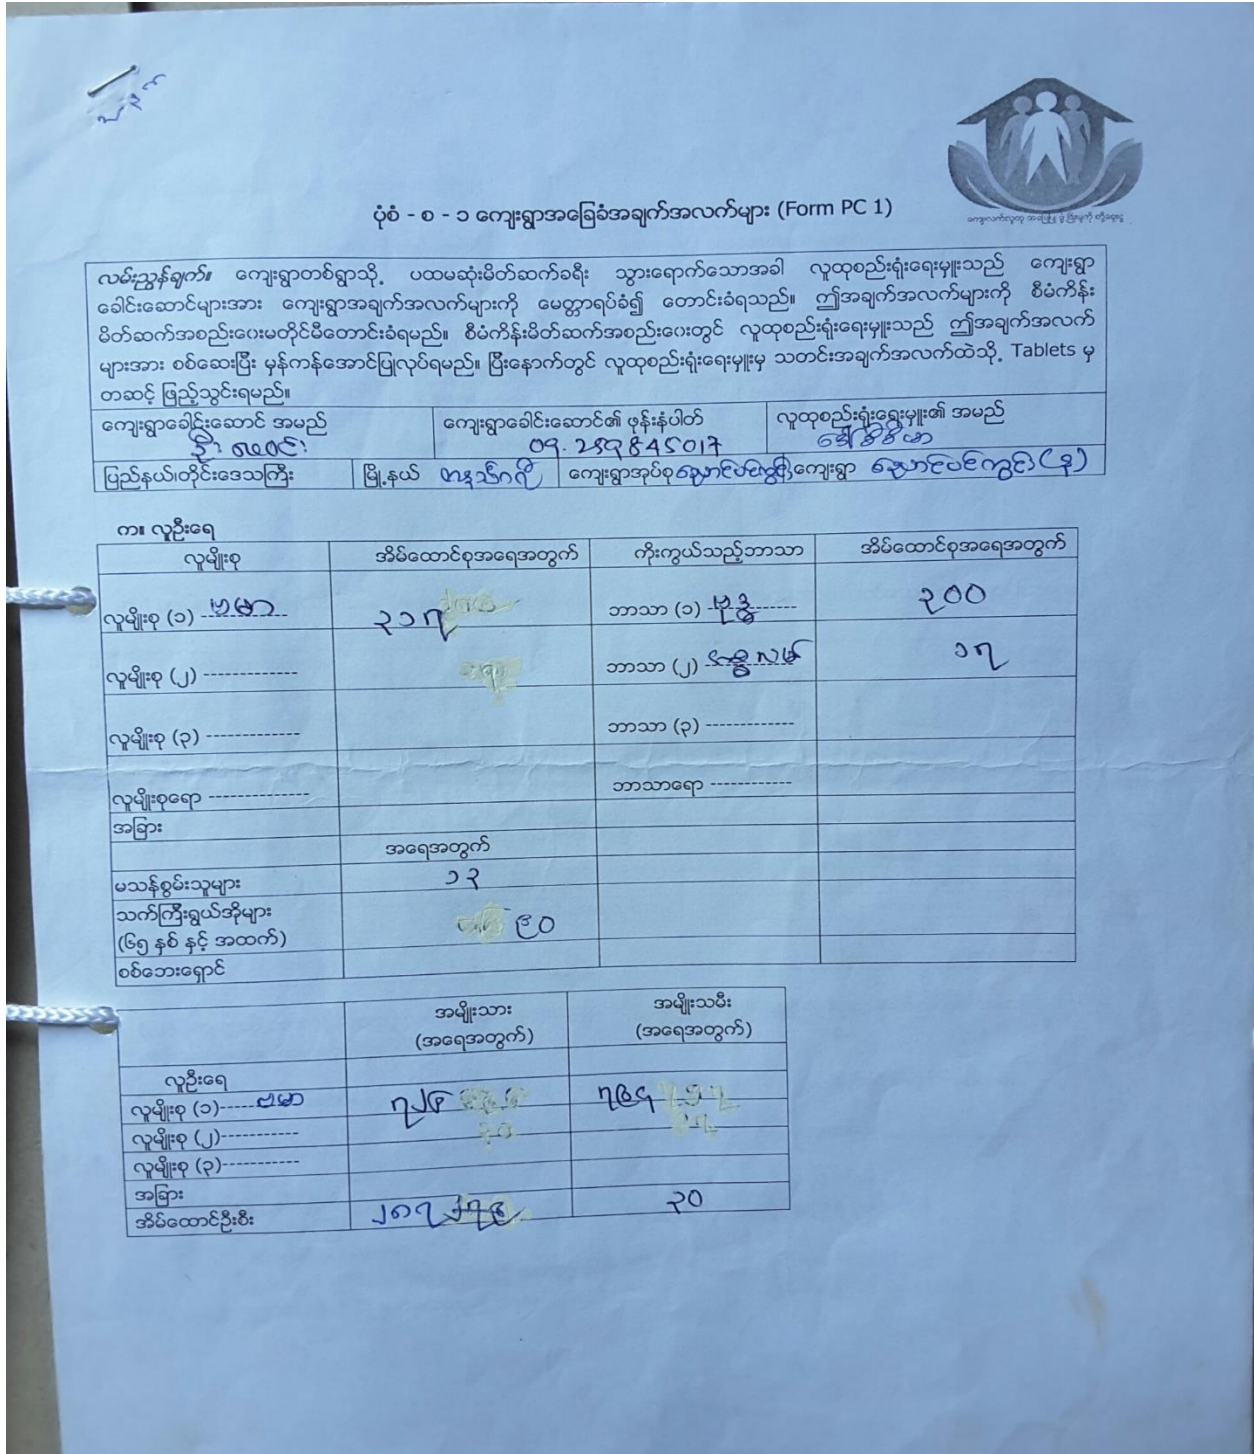 ပုံစံ - စ - ၁ ကျေးရွာအခြေခံအချက်အလက်များ (Form PC 1)
လမ်းညွှန်ချက်။ ကျေးရွာတစ်ရွာသို့ ပထမဆုံးမိတ်ဆက်ခရီး သွားရောက်သောအခါ လူထုစည်းရုံးရေးမှူးသည် ကျေးရွာ
ခေါင်းဆောင်များအား ကျေးရွာအချက်အလက်များကို မေတ္တာရပ်ခံ၍ တောင်းခံရသည်။ ဤအချက်အလက်များကို စီမံကိန်း
မိတ်ဆက်အစည်းဝေးမတိုင်မီတောင်းခံရမည်။ စီမံကိန်းမိတ်ဆက်အစည်းဝေးတွင် လူထုစည်းရုံးရေးမှူးသည် ဤအချက်အလက်
များအား စစ်ဆေးပြီး မှန်ကန်အောင်ပြုလုပ်ရမည်။ ပြီးနောက်တွင် လူထုစည်းရုံးရေးမှူးမှ သတင်းအချက်အလက်ထဲသို့ Tablets မှ
တဆင့် ဖြည့်သွင်းရမည်။
ကျေးရွာခေါင်းဆောင် အမည် ကျေးရွာခေါင်းဆောင်၏ ဖုန်းနံပါတ် လူထုစည်းရုံးရေးမှူး၏ အမည်
09.259845017
ပြည်နယ်၊တိုင်းဒေသကြီး မြို့နယ် တနင်္သာရီ ကျေးရွာအုပ်စု ညောင်ပင်ကွင်း ကျေးရွာ ညောင်ပင်ကွင်း (ခ)
က။ လူဦးရေ
လူမျိုးစု အိမ်ထောင်စုအရေအတွက် ကိုးကွယ်သည့်ဘာသာ အိမ်ထောင်စုအရေအတွက်
လူမျိုးစု (၁) ဗမာ ၃၁၇ ဘာသာ (၁) ဗုဒ္ဓ ၃၀၀
လူမျိုးစု (၂) ------------- ဘာသာ (၂) အစ္စလမ် ၁၇
လူမျိုးစု (၃) ------------- ဘာသာ (၃) -------------
လူမျိုးစုရော -------------- ဘာသာရော ------------
အခြား
အရေအတွက်
မသန်စွမ်းသူများ ၁၃
သက်ကြီးရွယ်အိုများ
(၆၅ နှစ် နှင့် အထက်) ၉၀
စစ်ဘေးရှောင်
အမျိုးသား အမျိုးသမီး
(အရေအတွက်) (အရေအတွက်)
လူဦးရေ
လူမျိုးစု (၁)----- ဗမာ ၇၂၆ ၇၆၄
လူမျိုးစု (၂)-----------
လူမျိုးစု (၃)-----------
အခြား
အိမ်ထောင်ဦးစီး ၂၈၇ ၃၀